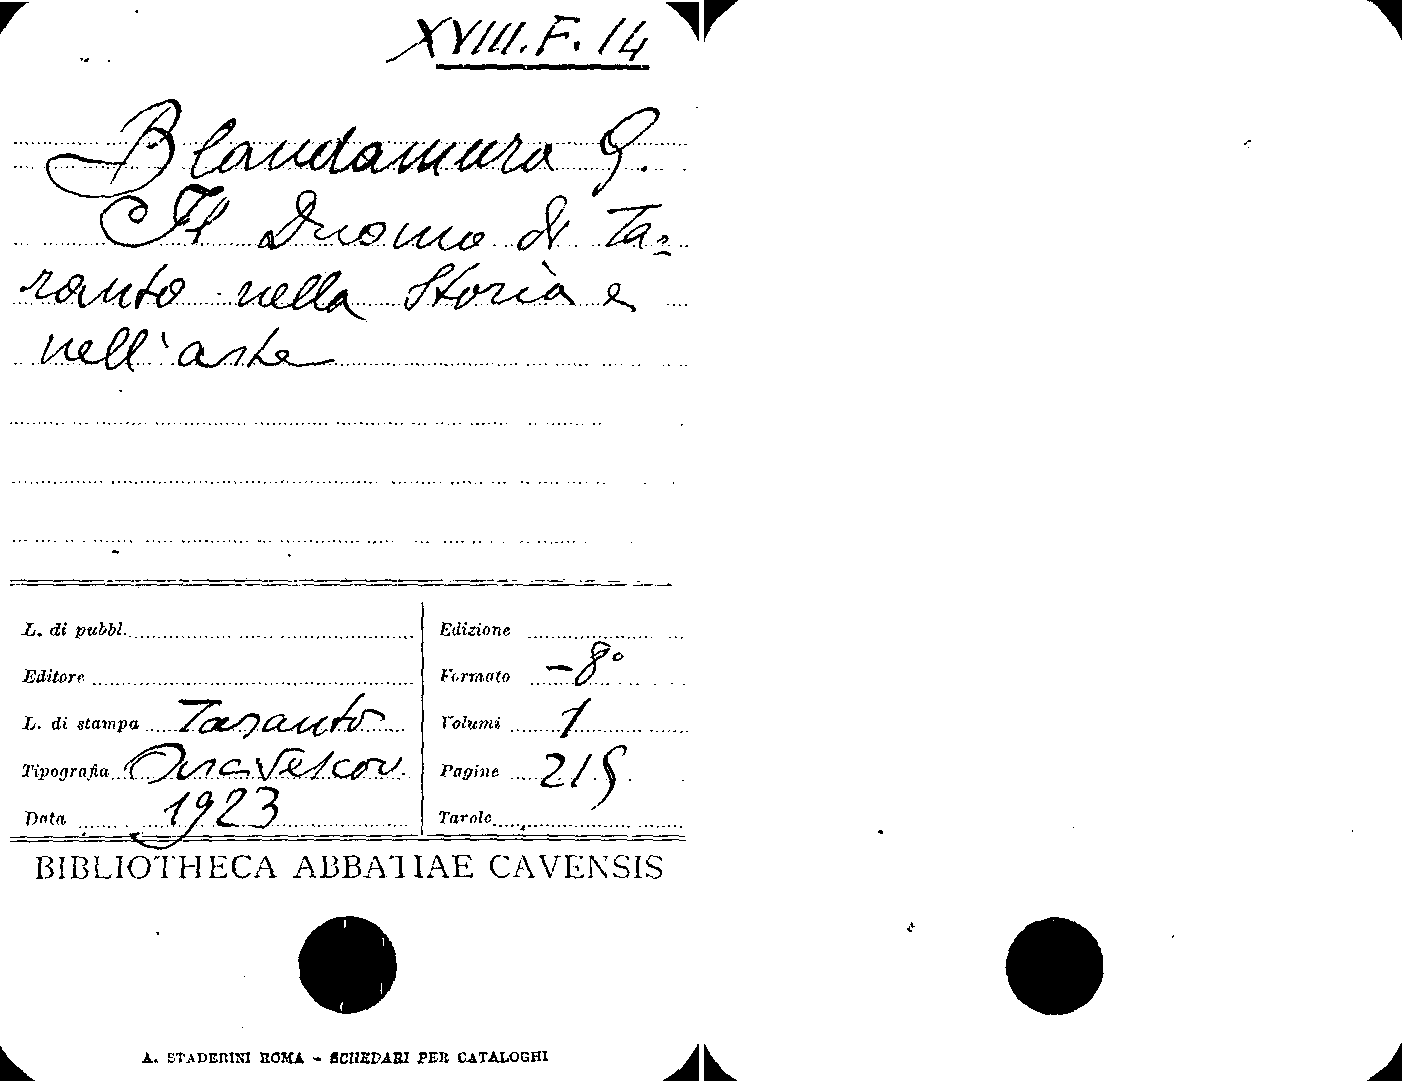 XVIII.F.14
Blandamura G.
Il Duomo di Ta=
ranto nella Storia e
nell'arte
L. di pubbl.
Edizione
Editore
Formato -8°
L. di stampa Taranto
Volumi 1
Tipografia Arcivescov.
Pagine 215
Data 1923
Tavole
BIBLIOTHECA ABBATIAE CAVENSIS
A. STADERINI ROMA - SCHEDARI PER CATALOGHI